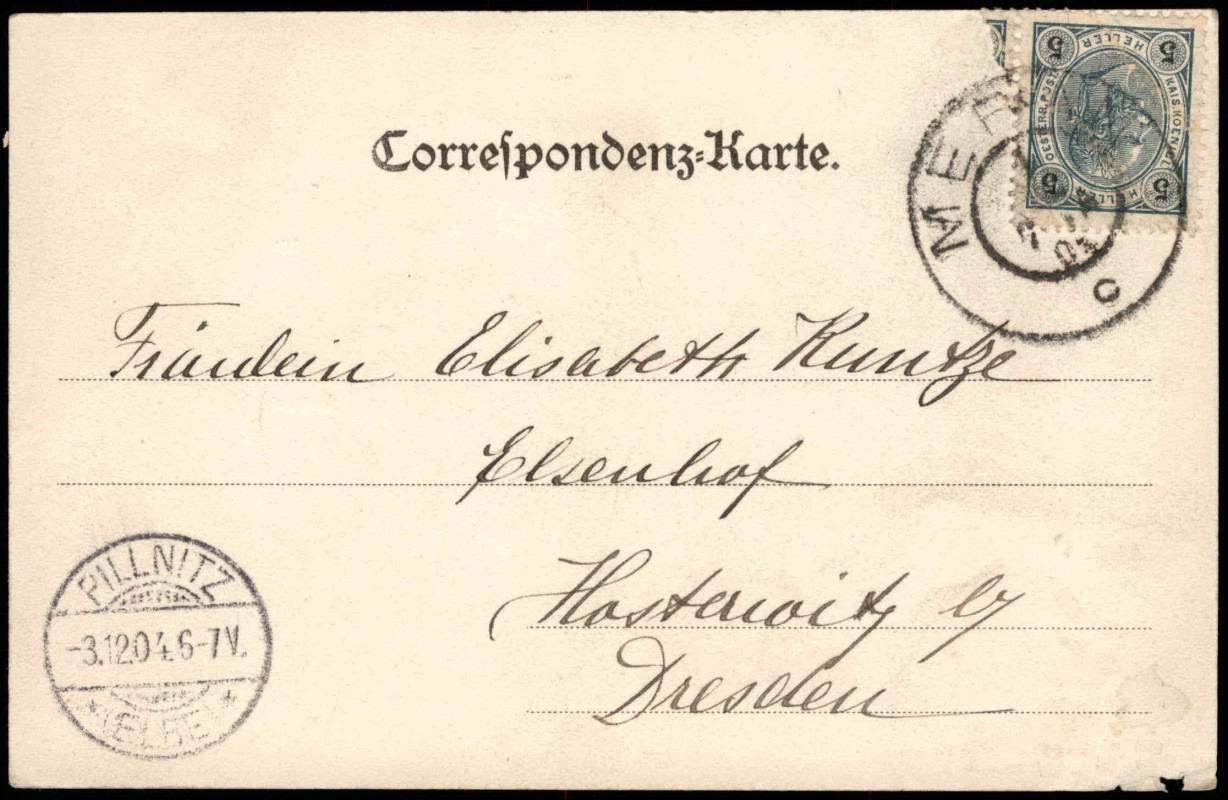 Correspondenz-Karte.
5 HELLER 5
KAIS. KOEN.
OESTERR. POST
5 HELLER 5
MER
04
c
Fräulein Elisabeth Kuntze
Elsenhof
Hosterwitz b/
Dresden
PILLNITZ
-3.12.04.6-7V.
* (ELBE) *